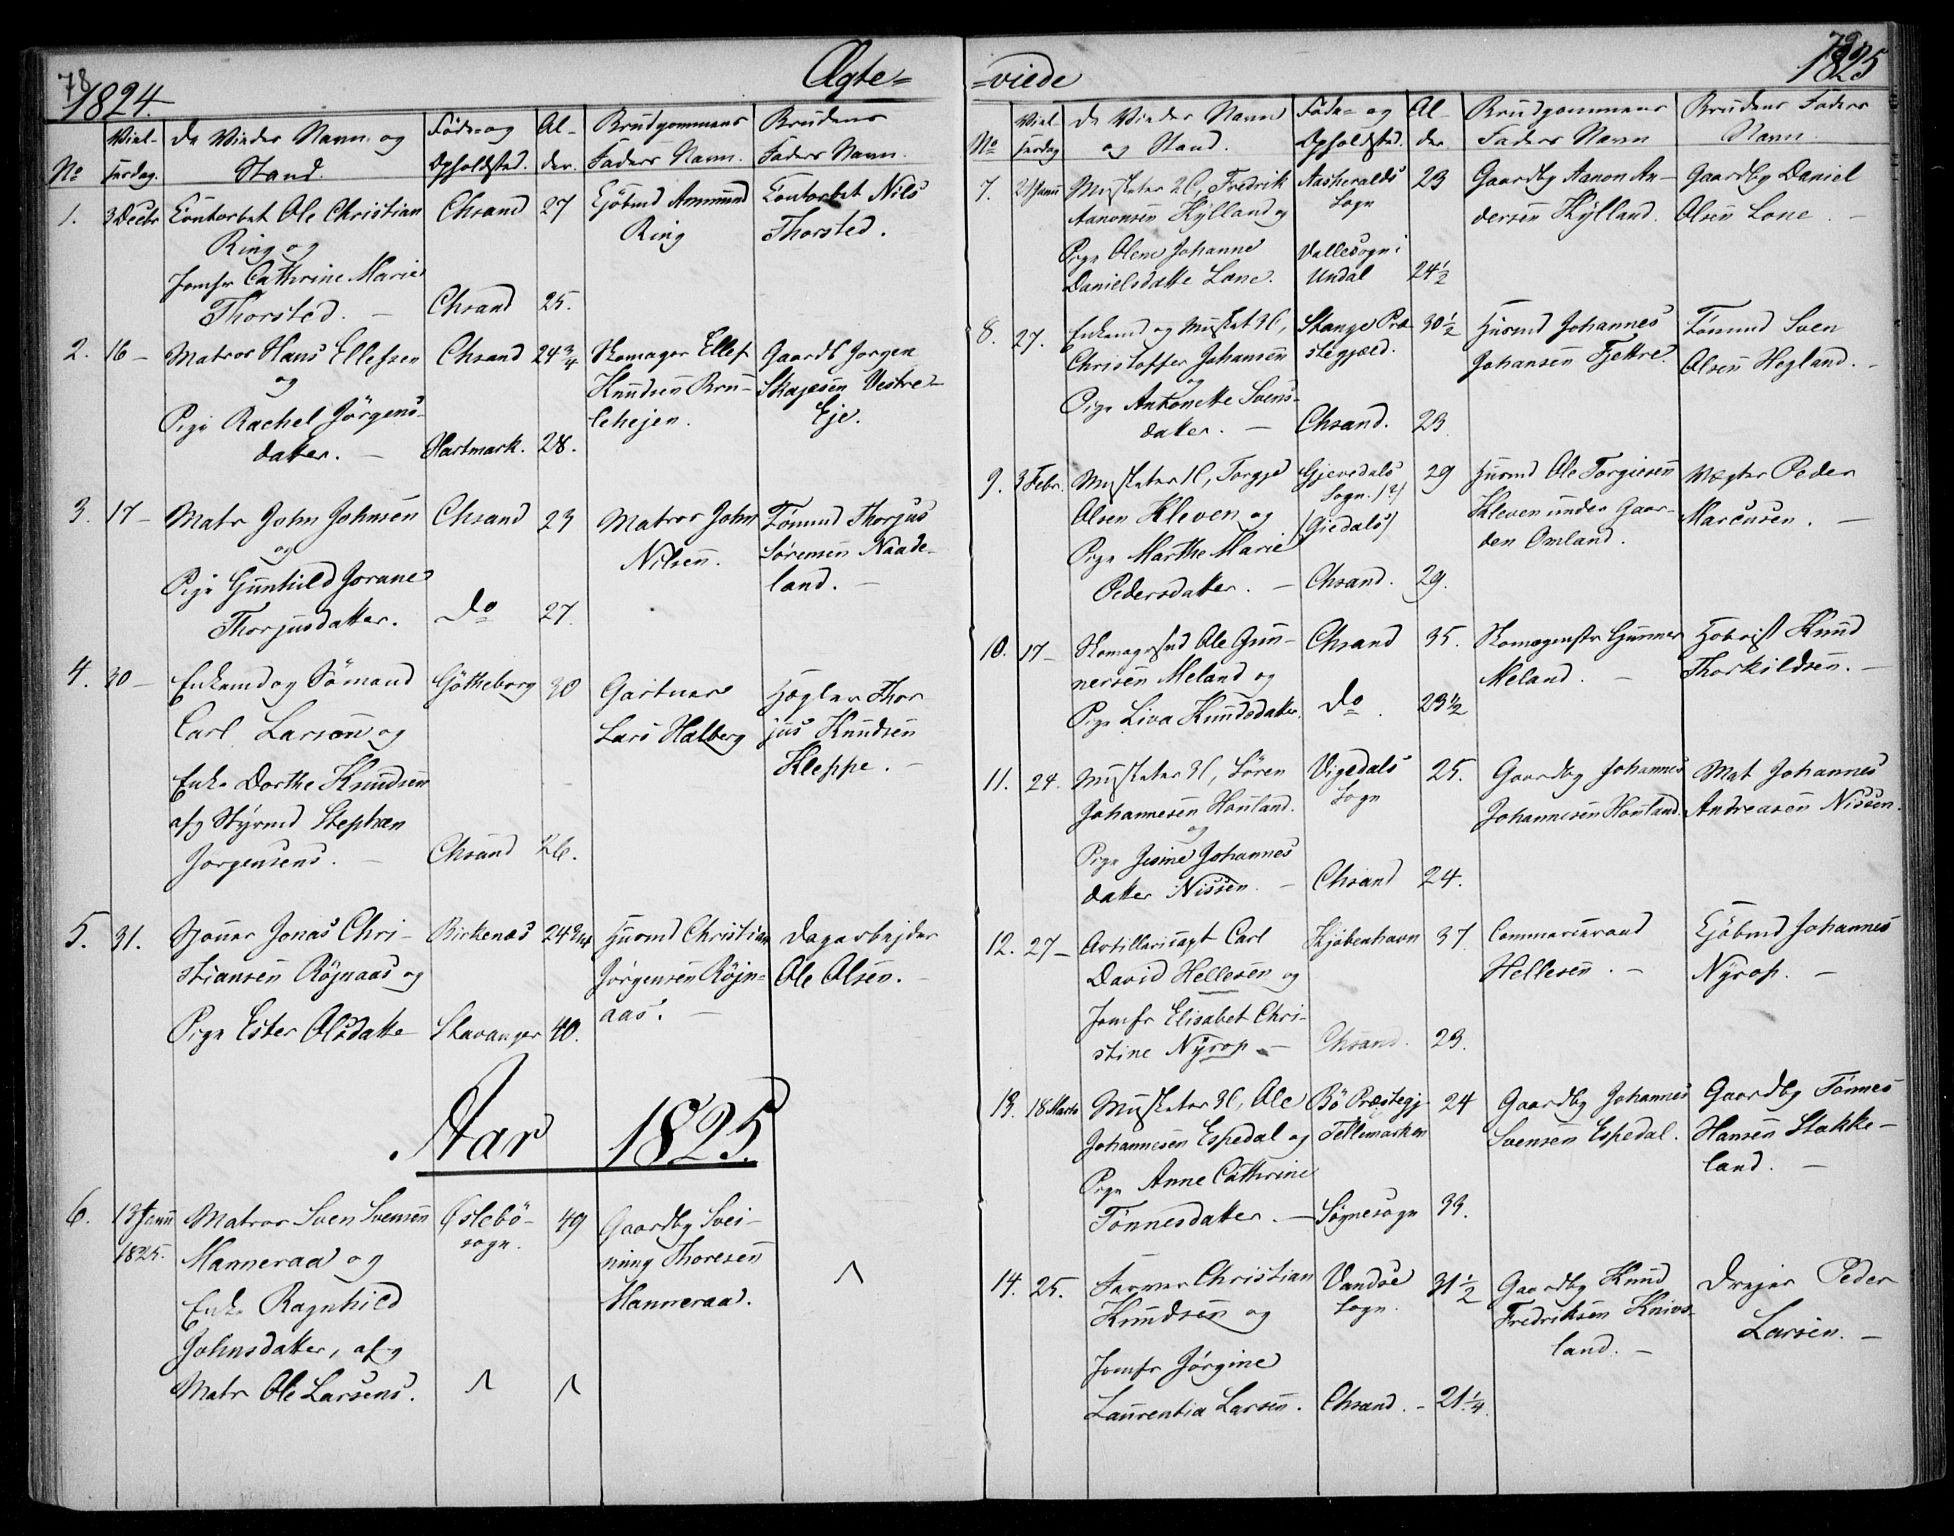 78
1824.
Ægte=
=viede
79
1825
No
Viel-
sesdag.
De Viedes Navn og
Stand.
Føde- og
Opholdsted.
Al-
der.
Brudgommens
Faders Navn.
Brudens
Faders Navn.
1. 3 Decbr
Contorbet Ole Christian
Ring og
Jomfr Cathrine Marie
Thorsted. —
Chsand
Chsand
27
25.
Kjöbmd Ammund
Ring
Contorbet Nils
Thorsted.
2. 16 —
Matros Hans Ellefsen
og
Pige Rachel Jörgens-
datter. —
Chsand
Hartmark.
24 3/4
28.
Skomager Ellef
Knudsen Bru-
lehejen.
Gaardb Jorgen
Skajesen Vestre-
Eje.
3. 17 —
Matr John Johnsen
og
Pige Gunhild Jorane
Thorjusdatter.
Chsand
Do
23
27.
Matros John
Nilsen.
Sömnd Thorjus
Sørensen Naade-
land. —
4. 30 —
Enkemd og Sömand
Carl Larson og
Enke Dorthe Knudsen
afg Styrmd Stephen
Jorgensens. —
Götheborg
Chsand
30
26.
Gartner
Lars Halberg
Hegler Thor
jus Knudsen
Kleppe. —
5. 31.
Sjouer Jonas Chri-
stiansen Röjnaas og
Pige Ester Olsdatte
Birkenes
Stavanger
24 3/4
40.
Husmd Christian
Jörgensen Röjn-
aas. —
Dagarbejder
Ole Olsen. —
Aar 1825.
6. 13 Janu
1825.
Matros Sven Svensen
Manneraa og
Enke Ragnhild
Johnsdatter, afg
Matr Ole Larsens.
Østebö-
sogn.
49
Gaardbg Svei-
ning Thoresen
Manneraa.
No
Viel
sesdag
De Viedes Navn
og Stand.
Føde- og
Opholdsted.
Al-
der
Brudgommens
Faders Navn
Brudens Faders
Navn.
7. 21 Janu
Musketer, Fredrik
Aanonsen Kylland og
Pige Olene Johanne
Danielsdatte Lone.
Aasheralds
Sogn
Vallesogn i
Undal
23
24 1/2
Gaardbg Aanon An-
dersen Kylland.
Gaardbg Daniel
Olsen Lone. —
8. 27.
Enkemd og Musket,
Christoffer Johansen
og
Pige Antonette Svens-
datter. —
Stange Præ
stegjæld.
Chsand.
30 1/2
23
Husmd Johannes
Johansen Fjettre.
Sömnd Sven
Olsen Hegland. —
9. 3 Febr.
Musketer, Torgje
Olsen Kleven og
Pige Marthe Marie
Pedersdatter. —
Gjevedals
Sogn. (?)
(Gjedals)
Chsand.
29
29.
Husmd Ole Torgiesen
Kleven under Gaar-
den Omland.
Vægter Peder
Marcusen. —
10. 17 —
Skomagersvd Ole Gun-
nersen Meland og
Pige Liva Knudsdatter.
Chsand
Do.
35.
23 1/2
Skomagerstr Gunner
Meland. —
Hoboist Knud
Thorkildsen. —
11. 24.
Musketer, Sören
Johannesen Houland.
og
Pige Jesine Johannes
datter Nissen. —
Vigedals
Sogn
Chsand
25.
24.
Gaardbg Johannes
Johannesen Houland.
Mat Johannes
Andreasen Nissen.
12. 27 —
Artillericapt Carl
David Hellesen og
Jomfr Elisabet Chri-
stine Nyrop. —
Kjöbenhavn
Chsand.
37
23.
Commerceraad
Hellesen. —
Kjöbmd Johannes
Nyrop. —
13. 18 Marts
Musketer, Ole
Johannesen Espedal og
Pige Anne Cathrine
Tönnesdatter. —
Bö Præstegj
Tellemarken
Sögnesogn
24
33.
Gaardbg Johannes
Svensen Espedal.
Gaardbg Tönnes
Hansen Stakke-
land. —
14. 25.
Farver Christian
Knudsen og
Jomfr Jörgine
Laurentia Larsen.
Vandse
Sogn.
Chsand. —
31 1/2
21 1/4.
Gaardbg Knud
Fredriksen Knivs-
land. —
Drejer Peder
Larsen. —